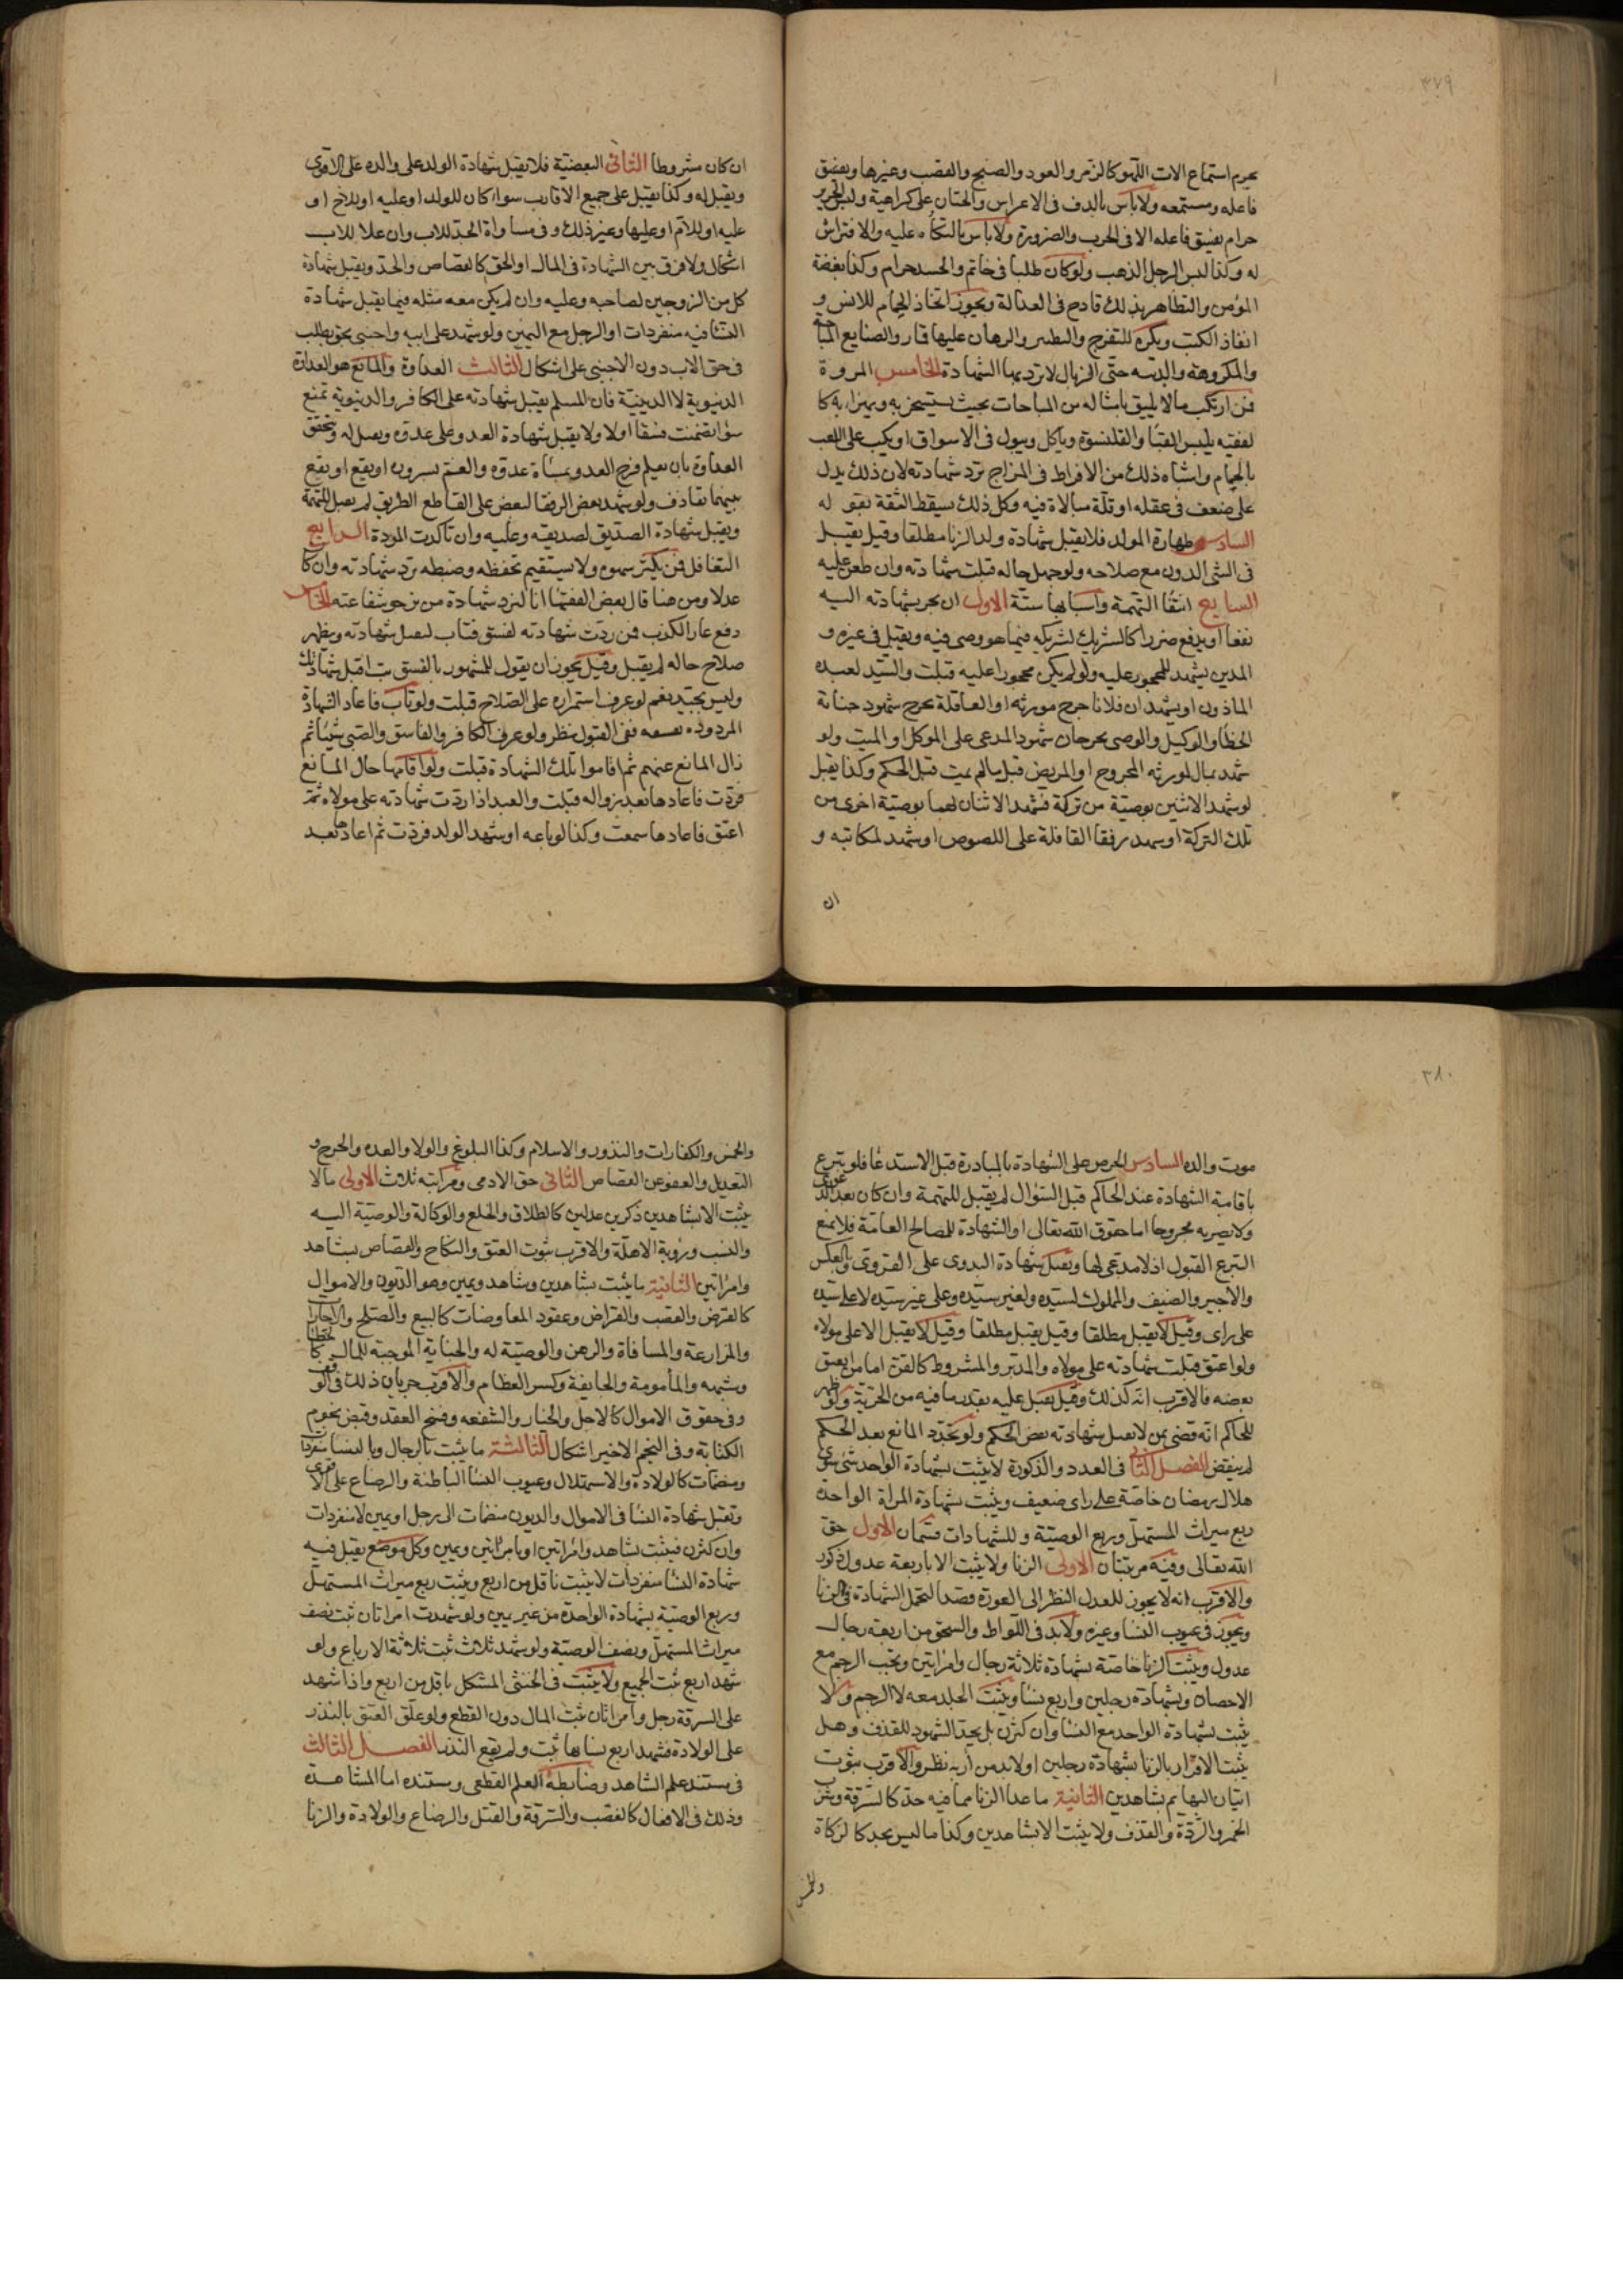 ٣٧٩
يحرم استماع الات اللهو كالزمر والعود والصنج والقصب وغيرها ويفسق
فاعله ومستمعه ولا باس بالدف فى الاعراس والختان على كراهية ولبس الحرير
حرام يفسق فاعله الا فى الحرب والضرورة ولا باس بالتكأه عليه والافتراش
له وكذا لبس الرجل الذهب ولو كان طليا فى خاتم والحسد حرام وكذا بغضة
المؤمن والتظاهر بذلك قادح فى العدالة ويجوز اتخاذ الحمام للانس و
انفاذ الكتب ويكره للتفرج والتطير والرهان عليها قمار والصنايع المباحة
والمكروهة والدنيه حتى الزبال لا ترد بها الشهادة الخامس المروة
فمن ارتكب ما لا يليق بامثاله من المباحات بحيث يستسخر به ويهزا به كا
لفقيه يلبس القبا والقلنسوة وياكل ويبول فى الاسواق او يكب على اللعب
بالحمام واشباه ذلك من الافراط فى المزاح ترد شهادته لان ذلك يدل
على ضعف فى عقله او قلة مبالاة فيه وكل ذلك يسقط الثقة بقوله
السادس طهارة المولد فلا يقبل شهادة ولد الزنا مطلقا وقيل يقبل
فى الشى الدون مع صلاحه ولو جهل حاله قبلت شهادته وان طعن عليه
السابع انتفا التهمة واسبابها ستة الاول ان يجر بشهادته اليه
نفعا او يدفع ضررا كالشريك لشريكه فيما هو وصى فيه ويقبل فى غيره و
المدين يشهد للمحجور عليه ولو لم يكن محجورا عليه قبلت والسيد لعبده
الماذون او يشهد ان فلانا جرح مورثه او العاقلة بجرح شهود جناية
الخطا والوكيل والوصى بجرحان شهود المدعى على الموكل او الميت ولو
شهد بمال لمورثه المجروح او المريض قبل ما لم يمت قبل الحكم وكذا يقبل
لو شهد الاثنين بوصية من تركة فشهد الاثنان لهما بوصية اخرى من
تلك التركة او شهد رفقا القافلة على اللصوص او شهد لمكاتبه و
ان
ان كان مشروطا الثانى البعضية فلا يقبل شهادة الولد على والده على الاقوى
ويقبل له وكذا يقبل على جميع الاقارب سواء كان للولد او عليه او للاخ او
عليه او للام او عليها وغير ذلك وفى مساواة الجد للاب وان علا للاب
اشكال ولا فرق بين الشهادة فى المال او الحق كالقصاص والحد ويقبل شهادة
كل من الزوجين لصاحبه وعليه وان لم يكن معه مثله فيما يقبل شهادة
النسا فيه منفردات او الرجل مع اليمين ولو شهد على ابيه واجنبى بحق بطلب
فى حق الاب دون الاجنبى على اشكال الثالث العداوة والمانع هو العداوة
الدنيوية لا الدينية فان المسلم يقبل شهادته على الكافر والدنيوية تمنع
سوا تضمنت فسقا اولا ولا يقبل شهادة العدو على عدوه ويقبل له ويتحقق
العداوة بان يعلم فرح العدو بمساءة عدوه والغم بسروره او يقع او يقع
بينهما تقاذف ولو شهد بعض الرفقا لبعض على القاطع الطريق لم يقبل للتهمة
ويقبل شهادة الصديق لصديقه وعليه وان تاكدت المودة الرابع
التغافل فمن يكثر سهوه ولا يستقيم تحفظه وضبطه ترد شهادته وان كا
عدلا ومن هنا قال بعض الفقها انا لنرد شهادة من نرجو شفاعته الخامس
دفع عار الكذب فمن ردت شهادته لفسق فتاب ليقبل شهادته ويظهر
صلاح حاله لم يقبل وقيل يجوز ان يقول للمشهور بالفسق تب اقبل شهادتك
وليس بجيد نعم لو عرف استمراره على الصلاح قبلت ولو تاب فاعاد الشهادة
المردوده بفسقه ففى القبول نظر ولو عرف الكافر والفاسق والصبى شيئا ثم
زال المانع عنهم ثم اقاموا تلك الشهادة قبلت ولو اقاموها حال المانع
فردت فاعادها بعد زواله قبلت والعبد اذا ردت شهادته على مولاه ثم
اعتق فاعادها سمعت وكذا لو باعه او شهد الولد فردت ثم اعادها بعد
٣٨٠
موت والده السادس الحرص على الشهادة بالمبادرة قبل الاستدعا فلو تبرع
باقامة الشهادة عند الحاكم قبل السؤال لم يقبل للتهمة وان كان بعد الدعوى
ولا يصير به مجروحا اما حقوق الله تعالى او الشهادة للمصالح العامة فلا يمنع
التبرع القبول اذ لا مدعى لها ويقبل شهادة البدوى على القروى وبالعكس
والاجير والضيف والمملوك لسيده ولغير سيده وعلى غير سيده لا على سيده
على راى وقيل لا يقبل مطلقا وقيل يقبل مطلقا وقيل لا يقبل الا على مولاه
ولو اعتق قبلت شهادته على مولاه والمدبر والمشروط كالقن اما من اعتق
بعضه فالاقرب انه كذلك وقيل يقبل عليه بقدر ما فيه من الحرية ولو ظهر
للحاكم انه قضى بمن لا يقبل شهادته نقض الحكم ولو تجدد المانع بعد الحكم
لم ينقض الفصل الثانى فى العدد والذكورة لا يثبت بشهادة الواحد شى سوى
هلال رمضان خاصة على راى ضعيف ويثبت بشهادة المراة الواحدة
ربع ميراث المستهل وربع الوصية وللشهادات قسمان الاول حق
الله تعالى وفيه مرتبتان الاولى الزنا ولا يثبت الا باربعة عدول ذكور
والاقرب انه لا يجوز للعدل النظر الى العورة قصدا لتحمل الشهادة فى الزنا
ويجوز فى عيوب النسا وغيره ولا بد فى اللواط والسحق من اربعة رجال
عدول ويثبت الزنا خاصة بشهادة ثلاثة رجال وامراتين ويجب الرجم مع
الاحصان وبشهادة رجلين واربع نسا ويثبت الجلد معه لا الرجم ولا
يثبت بشهادة الواحد مع النسا وان كثرن بل يحد الشهود للقذف وهل
يثبت الاقرار بالزنا بشهادة رجلين او لا بد من اربعه نظر والاقرب ثبوت
اتيان البهايم بشاهدين الثانية ما عدا الزنا مما فيه حد كالسرقة وشرب
الخمر والردة والقذف ولا يثبت الا بشاهدين وكذا ما ليس بحد كالزكاة
والخمس
والخمس والكفارات والنذور والاسلام وكذا البلوغ والولا والعده والجرح و
التعديل والعفو عن القصاص الثانى حق الادمى ومراتبه ثلاث الاولى ما لا
يثبت الا بشاهدين ذكرين عدلين كالطلاق والخلع والوكالة والوصية اليه
والنسب ورؤية الاهلة والاقرب ثبوت العتق والنكاح والقصاص بشاهد
وامراتين الثانية ما يثبت بشاهدين وشاهد ويمين وهو الديون والاموال
كالقرض والغصب والقراض وعقود المعاوضات كالبيع والصلح والاجارات
والمزارعة والمساقاة والرهن والوصية له والجناية الموجبة للمال كالخطا
وشبهه والمأمومة والجايفة وكسر العظام والاقرب جريان ذلك فى الوقف
وفى حقوق الاموال كالاجل والخيار والشفعه وفسخ العقد وقبض نجوم
الكتابة وفى النجم الاخير اشكال الثالثة ما يثبت بالرجال وبالنسا منفردات
ومنضمات كالولادة والاستهلال وعيوب النسا الباطنة والرضاع على الاقوى
وتقبل شهادة النسا فى الاموال والديون منضمات الى رجل او يمين لا منفردات
وان كثرن فيثبت بشاهد وامراتين او بامراتين ويمين وكل موضع يقبل فيه
شهادة النسا منفردات لا يثبت باقل من اربع ويثبت ربع ميراث المستهل
وربع الوصية بشهادة الواحدة من غير يمين ولو شهدت امراتان ثبت نصف
ميراث المستهل ونصف الوصية ولو شهد ثلاث ثبت ثلاثة الارباع ولو
شهد اربع ثبت الجميع ولا يثبت فى الخنثى المشكل باقل من اربع واذا شهد
على السرقة رجل وامراتان ثبت المال دون القطع ولو علق العتق بالنذر
على الولادة فشهد اربع نسا بها ثبت ولم يقع النذر الفصل الثالث
فى مستند علم الشاهد وضابطه العلم القطعى ومستنده اما المشاهدة
وذلك فى الافعال كالغصب والسرقة والقتل والرضاع والولادة والزنا